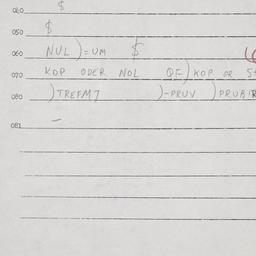 060 $
050 $
060 NUL ) = UM $
070 KOP ODER NOL QF ) KOP OR
080 ) TREFM7 )-PRUV ) PRUBIR
081 -